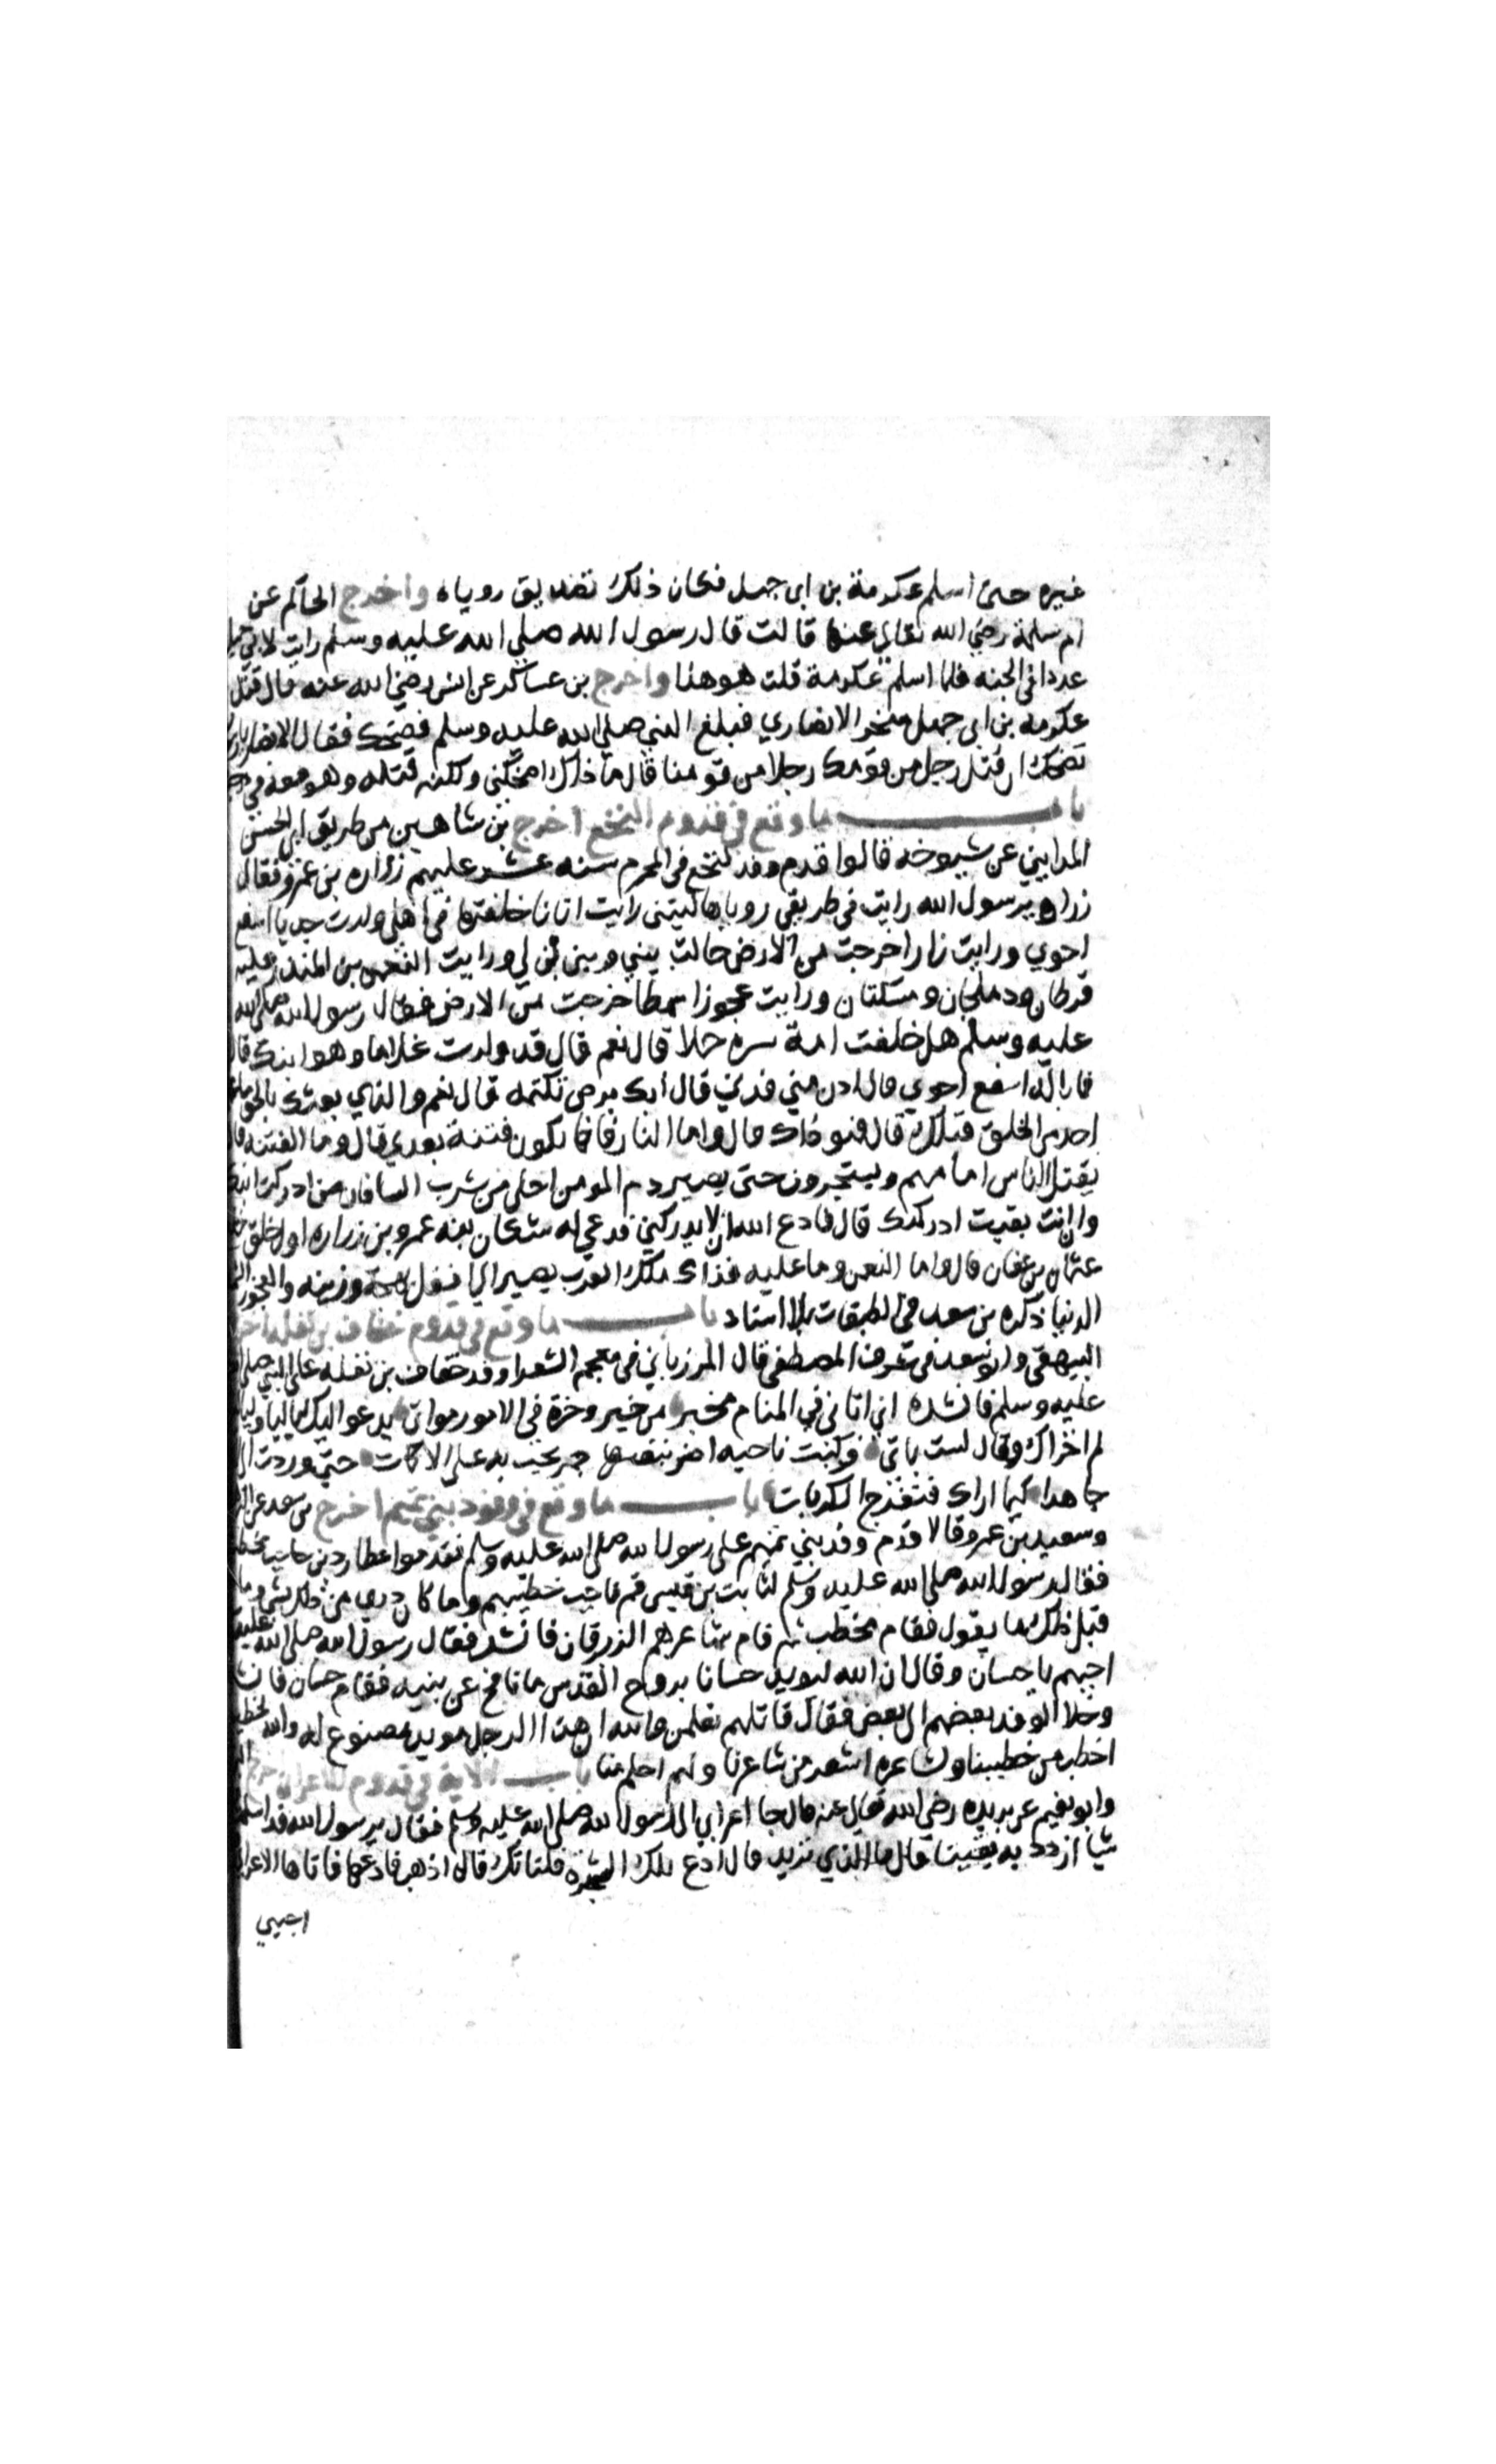 غيره حتى اسلم عكرمة بن ابى جهل فكان ذلك تصديق روياه واخرج الحاكم عن
ام سلمة رضي الله تعالى عنها قالت قال رسول الله صلي الله عليه وسلم رايت لابي
عددا فى الجنه فلما اسلم عكرمة قلت هو هذا واخرج بن عساكر عن انس رضي الله عنه قال قتل
عكرمه بن ابى جهل صخر الانصاري فبلغ النبي صلي الله عليه وسلم فضحك فقال الانصار
تضحك ان قتل رجل من قومك رجلا من قومنا قال ما ذاك اضحكني ولكنه قتله وهو معه في
باب ما وقع في قدوم النخع اخرج بن شاهين من طريق ابى الحسن
المدايني عن شيوخه قالوا قدم وفد النخع فى المحرم سنه عشر عليهم زراره بن عمرو فقال
زراره يرسول الله رايت في طريقي رويا هالتني رايت اتانا خلفتها في اهلي ولدت جديا اسفع
احوي ورايت نارا خرجت من الارض حالت بيني وبين بن لي ورايت النعمن بن المنذر عليه
قرطان ودملجان ومسكتان ورايت عجوزا شمطا خرجت من الارض فقال رسول الله صلى الله
عليه وسلم هل خلفت امة سره حملا قال نعم قال قد ولدت غلاما وهو ابنك قال
فما باله اسفع احوي قال ادن مني فدني قال ابك برص تكتمه قال نعم والذي بعثك بالحق ما علم
احد من الخلق قبلك قال فهو ذاك قال واما النار فانها تكون فتنة بعدي قال وما الفتنه قال
يقتل الناس امامهم ويشتجرون حتى يصير دم المومن احلى من شرب الما فان مت ادركت ابنك
وان انت بقيت ادركتك قال فادع الله ان لا يدركني فدعي له فكان ابنه عمرو بن زراره اول خلق خلع
عثمان بن عفان قال واما النعمن وما عليه فذاك ملك العرب يصير الى افضل بهجة وزينه والعجوز
الدنيا ذكره بن سعد في الطبقات بلا اسناد باب ما وقع في قدوم خفاف بن نضله اخرج
البيهقى وابو سعد فى شرف المصطفى قال المرزباني فى معجم الشعرا وفد خفاف بن نضله على النبي صلى الله
عليه وسلم فانشده اني اتاني في المنام مخبر من خير وخرة فى الامور مواتى يدعو اليك لياليا ولياليا
ثم اخزال وقال لست باتى فركبت ناحيه اضر بنفسها جمز تخب به على الاكات حتى وردت الى
جاهدا كيما اراك فتفرج الكربات باب ما وقع في وفود بني تميم اخرج بن سعد عن الزهري
وسعيد بن عمرو قالا قدم وفد بني تميم على رسول الله صلى الله عليه وسلم فقدموا عطارد بن حاجب فخطب
فقال رسول الله صلى الله عليه وسلم لثابت بن قيس قم فاجب خطيبهم وما كان دري من ذلك بشي وما
قبل ذلك ما يقول فقام فخطب ثم قام شاعرهم الزبرقان فانشد فقال رسول الله صلى الله عليه
اجبهم يا حسان وقال ان الله ليويد حسانا بروح القدس ما نافح عن نبيه فقام حسان فانشد
وخلا الوفد بعضهم الى بعض فقال قاتلهم تعلمن والله ان هذا الرجل مويد مصنوع له والله لخطيبه
اخطب من خطيبنا ولشاعره اشعر من شاعرنا ولهم احلم منا باب الاية في قدوم الاعرابي اخرج
وابو نعيم عن بريده رضي الله تعالى عنه قال جا اعرابي الى رسول الله صلى الله عليه وسلم فقال يرسول الله قد اسلمت
شيا ازدد به يقينا قال ما الذي تريد قال ادع تلك الشجرة فلتاتك قال اذهب فادعها فاتاها الاعرابي
اجيبي